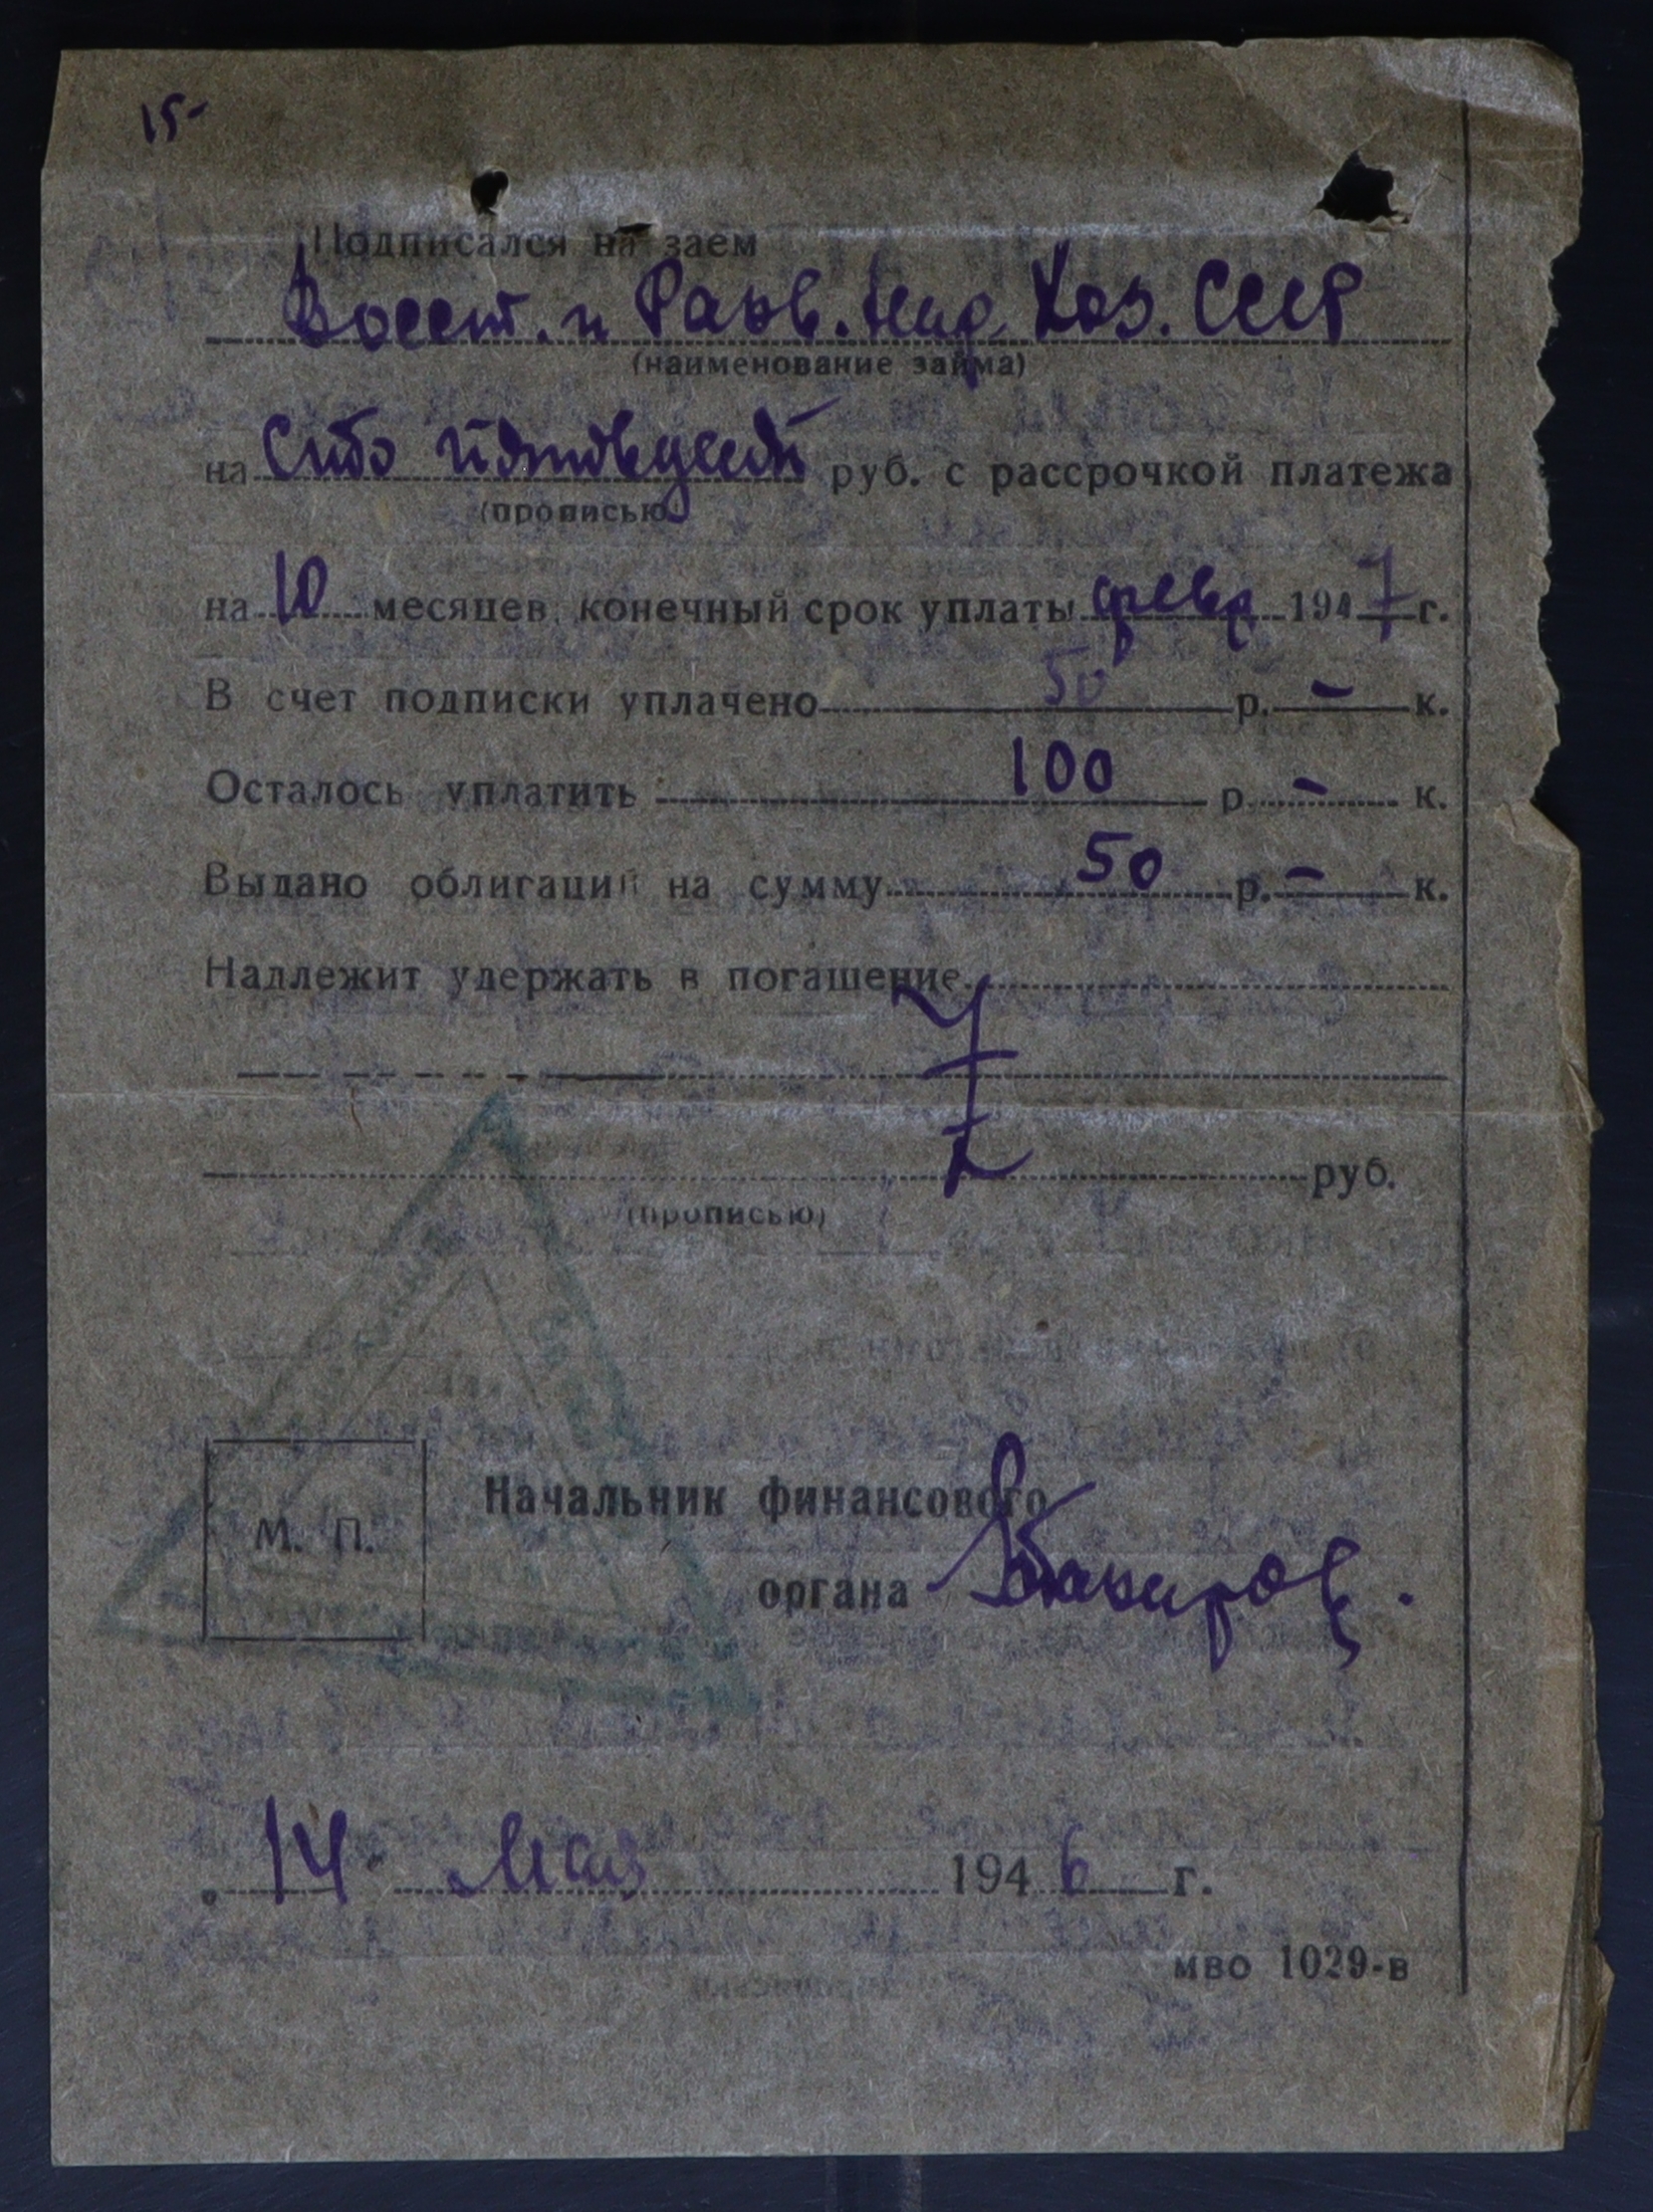 15-
Подписался на заем
Восст. и Разв. Нар. Хоз. СССР
(наименование займа)
на Сто пятьдесят руб. с рассрочкой платежа
(прописью)
на 10 месяцев, конечный срок уплаты февр 1947 г.
В счет подписки уплачено 50 р. – к.
Осталось уплатить 100 р. – к.
Выдано облигаций на сумму 50 р. – к.
Надлежит удержать в погашение
руб.
(прописью)
Начальник финансового
М. П.
органа
14 мая 1946 г.
мво 1029-в